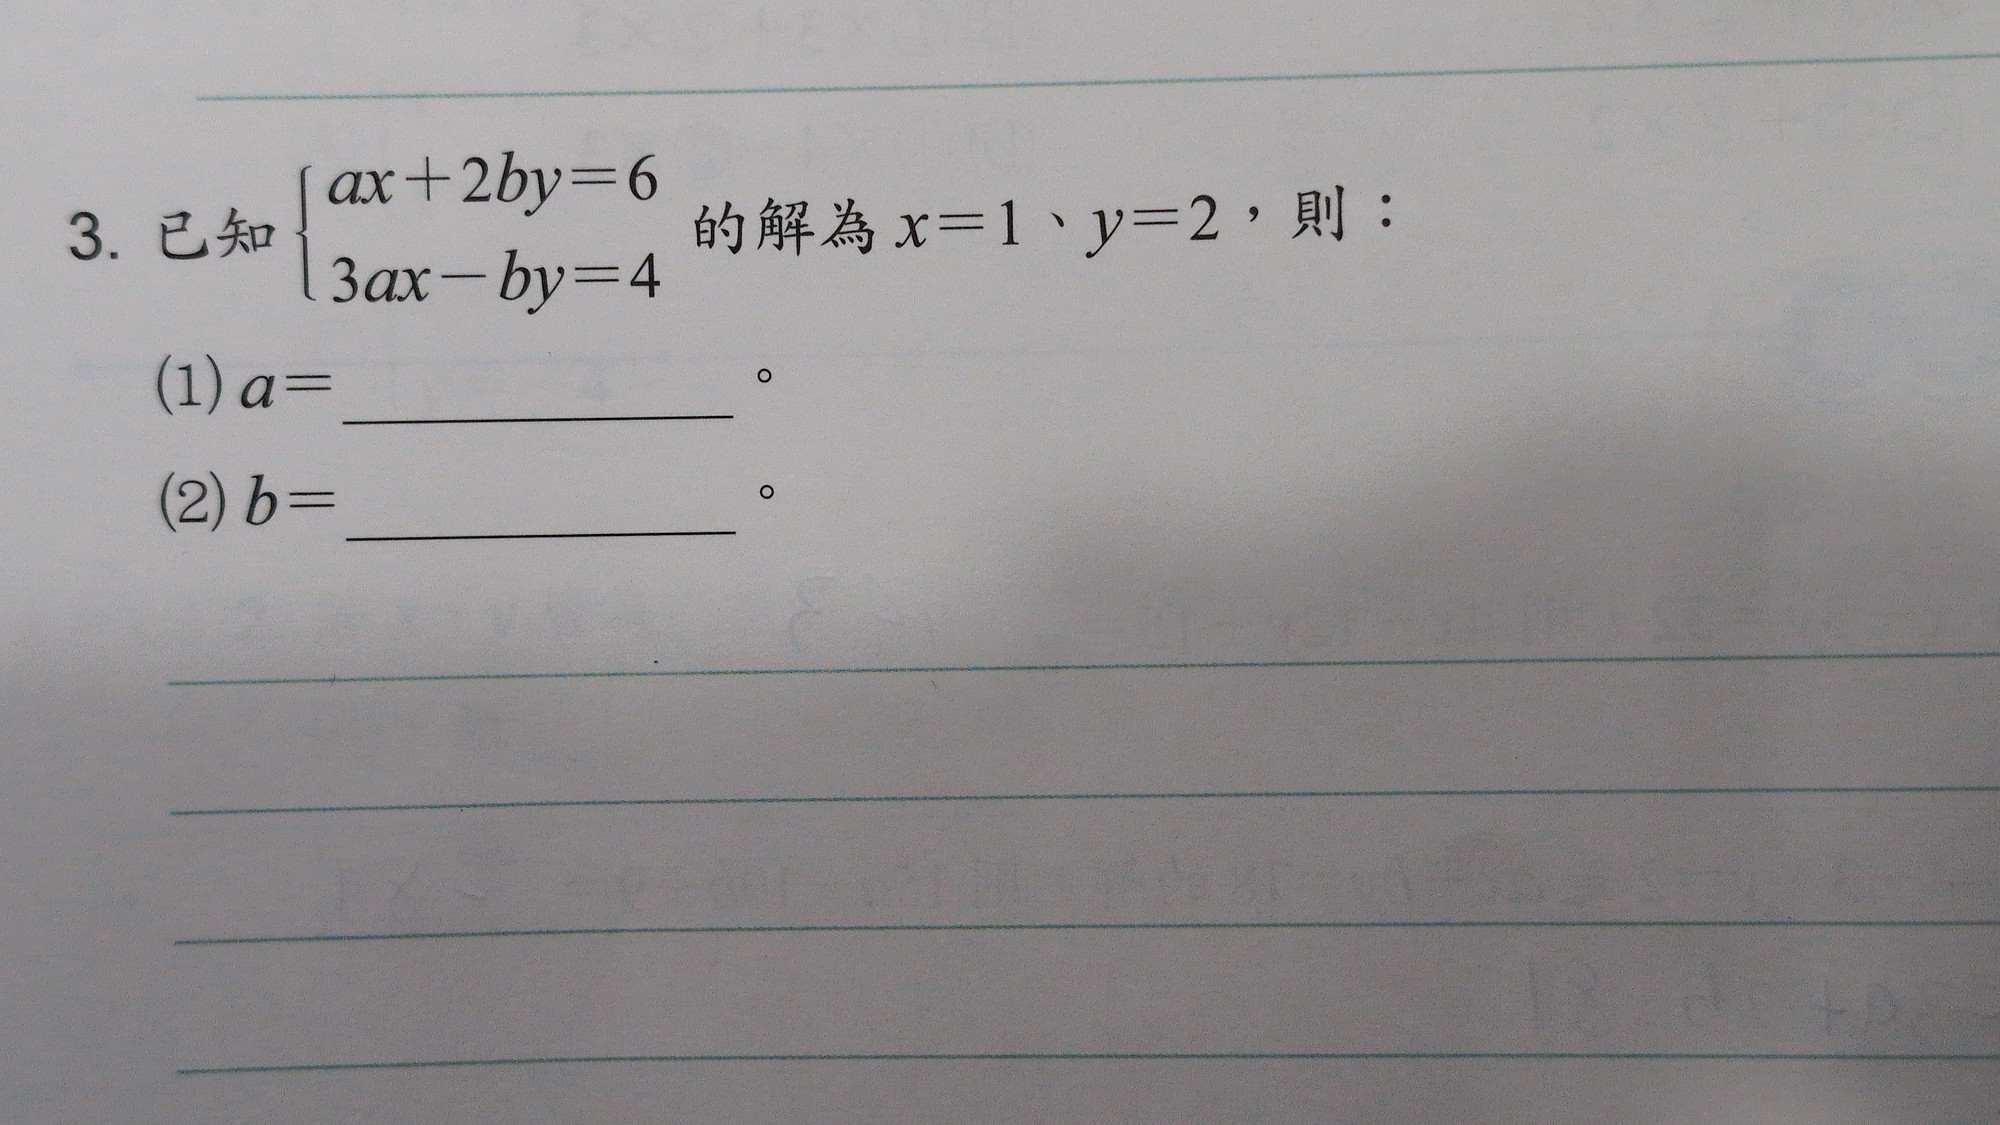 3. 已知 { ax+2by=6
3ax-by=4 的解為 x=1、y=2,則:
(1) a=________。
(2) b=________。